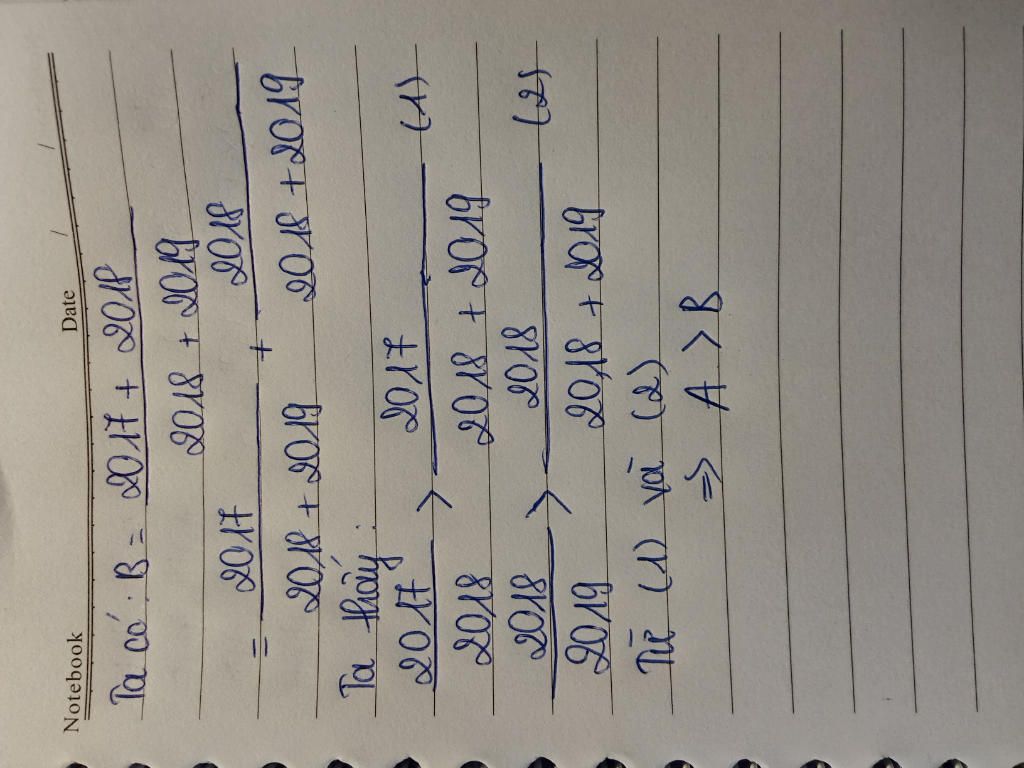 Notebook Date / /
Ta có: B = 2017 + 2018
2018 + 2019
= 2017 + 2018
2018 + 2019 2018 + 2019
Ta thấy:
2017 > 2017 (1)
2018 2018 + 2019
2018 > 2018 (2)
2019 2018 + 2019
Từ (1) và (2)
=> A > B